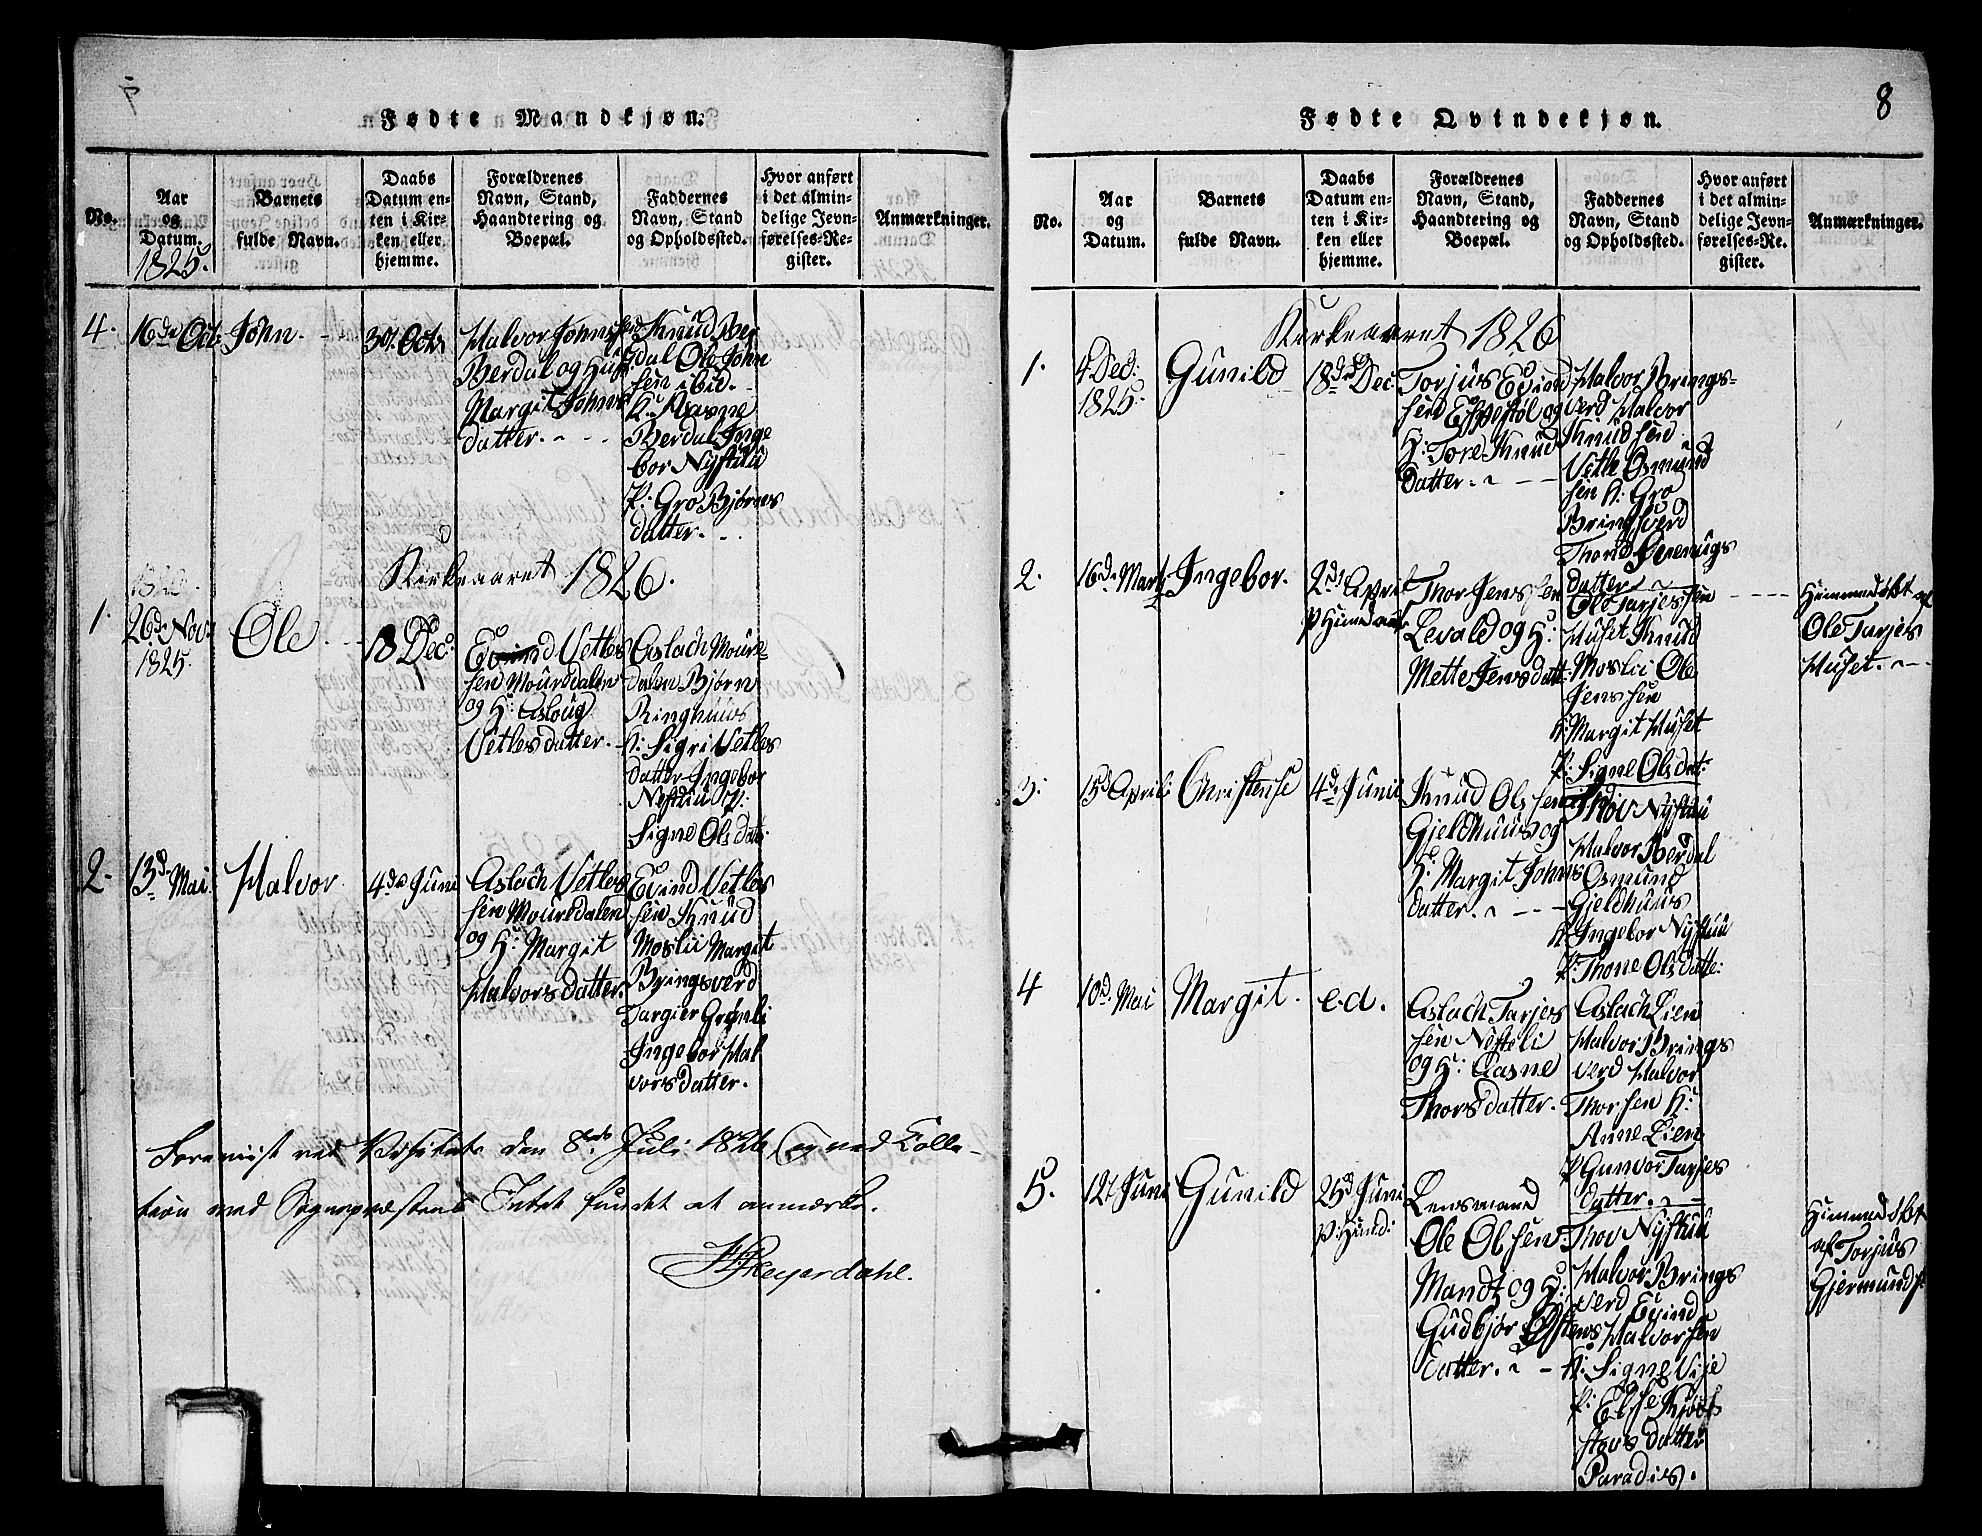 7
Fødte Mandkjøn.
No.
Aar
og
Datum.
1825.
Barnets
fulde Navn.
Daabs
Datum en-
ten i Kir-
ken eller
hjemme.
Forældrenes
Navn, Stand,
Haandtering og
Boepæl.
Faddernes
Navn, Stand
og Opholdssted.
Hvor anført
i det almin-
delige Jevn-
førelses-Re-
gister.
Anmærkninger.
4.
16de Oct
John.
30. Octr
Halvor Johnsen
Berdal og Hust
Margit Johns
datter.
Knud Ber
dal Ole John
sen ibid.
K: Aasne
Berdal Inge
bor Nystuu
P: Gro Bjørns
datter.
Kirkeaaret 1826.
1.
26d Nov:
1825.
Ole
18 Dec:
Evind Vetles
sen Mourdalen
og H: Asloug
Vetlesdatter.
Aslach Mour=
dalen Bjørn
Ringhuus
K: Sigri Vetles
datter Ingebor
Nystuu P:
Signe Olsdat:
2.
13d Mai
Halvor
4de Juni
Aslach Vetles
sen Mourdalen
og H: Margit
Halvorsdatter.
Evind Vetles
sen Knud
Moslii Margit
Bringsverd
Targier Grønli
Ingebor Hal
vorsdatter.
Foreviist ved Visitats den 8de Juli 1826, og ved Colla-
tion med Sognepræstens Intet fundet at anmærke.
Heyerdahl.
8
Fødte Qvindekjøn.
No.
Aar
og
Datum.
Barnets
fulde Navn.
Daabs
Datum en-
ten i Kir-
ken eller
hjemme.
Forældrenes
Navn, Stand,
Haandtering og
Boepæl.
Faddernes
Navn, Stand
og Opholdssted.
Hvor anført
i det almin-
delige Jevn-
førelses-Re-
gister.
Anmærkninger.
Kirkeaaret 1826
1.
4 Dec:
1825.
Gunild
18de Dec:
Torjus Evind
sen Espestøl og
H: Tore Knud
datter.
Halvor Brings=
verd Halvor
Knudsen
Vetle Osmund
sen K: Gro
Bringsverd
datter
2.
16d. Marts
Ingebor.
2d April
Thor Jenssen
Levald og H:
Mette Jensdatt
Ole Tarjessen
Huset Knud
Moslii Ole
Jenssen
K: Margit Huset
P: Signe Olsdat:
Ole Tarjes
Huset.
3.
15d April
Christense
4de Junii
Knud Olssen
Gjeldhuus og
H: Margit Johns
datter.
Thov Nystuu
Halvor Berdal
Osmund
Gjeldhuus
K: Ingebor Nystuu
P: Thone Olsdatte:
4
10d. Mai
Margit.
e.d.
Aslach Tarjes
sen Nesteli
og H: Aasne
Thorsdatter.
Aslach Lien
Halvor Brings
verd Halvor
Thorsen K:
Anne Lien
P Gunvor Tarjes
datter.
5.
12t Juni
Gunild
25d Juni
Lensmand
Ole Olsen
Mandt og H:
Gudbjør Østens
datter.
Thov Nystuu
Halvor Brings
verd Evind
Halvorsen
K: Signe Vije
P: Else Kjøst
stovs datter
Paradiis.
af Torjus
Gjermunds.